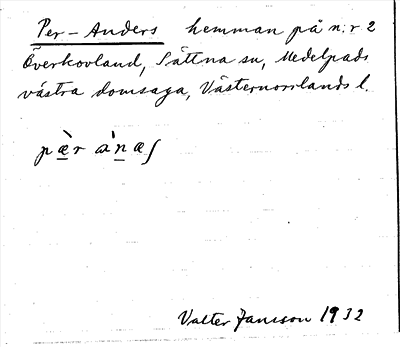 Per-Anders hemman på n:r 2
Överkovland, Sättna sn, Medelpads
västra domsaga, Västernorrlands l.
pæ̀r ánæʃ
Valter Jansson 1932